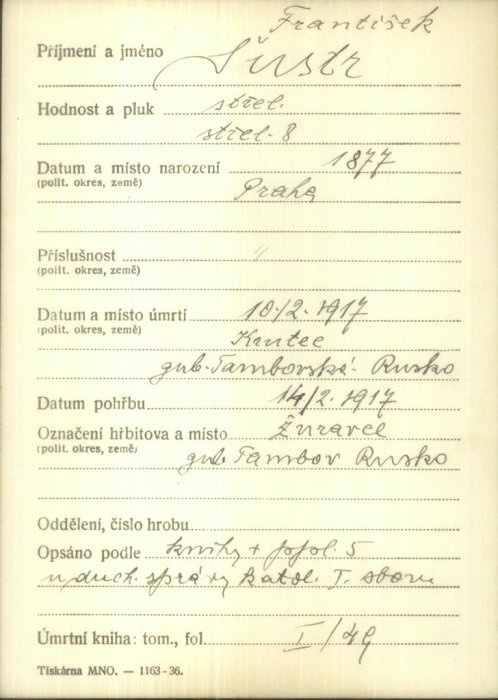 František
Příjmení a jméno Šustr
Hodnost a pluk střel.
střel. 8
Datum a místo narození 1877
(polit. okres, země) Praha
Příslušnost "
(polit. okres, země)
Datum a místo úmrtí 10/2. 1917
(polit. okres, země) Krutec
gub. Tamborská. Rusko
Datum pohřbu 14/2. 1917
Označení hřbitova a místo Žuravel
(polit. okres, země) gub Tambov Rusko
Oddělení, číslo hrobu
Opsáno podle knihy + 5
u duch. správy katol. T. sboru
Úmrtní kniha: tom., fol. I/49
Tiskárna MNO. — 1163-36.